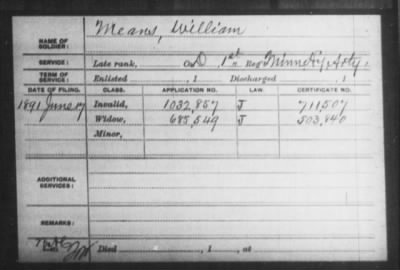 NAME OF SOLDIER: Means, William
SERVICE: Late rank, Co. D 1st Reg. Minn. Hy. Arty.
TERM OF SERVICE: Enlisted , 1 Discharged , 1
DATE OF FILING. CLASS. APPLICATION NO. LAW. CERTIFICATE NO.
1891 June 17 Invalid, 1032,857 J 711,507
Widow, 685,549 J 503,840
Minor,
ADDITIONAL SERVICES:
REMARKS:
Died , 1 , at